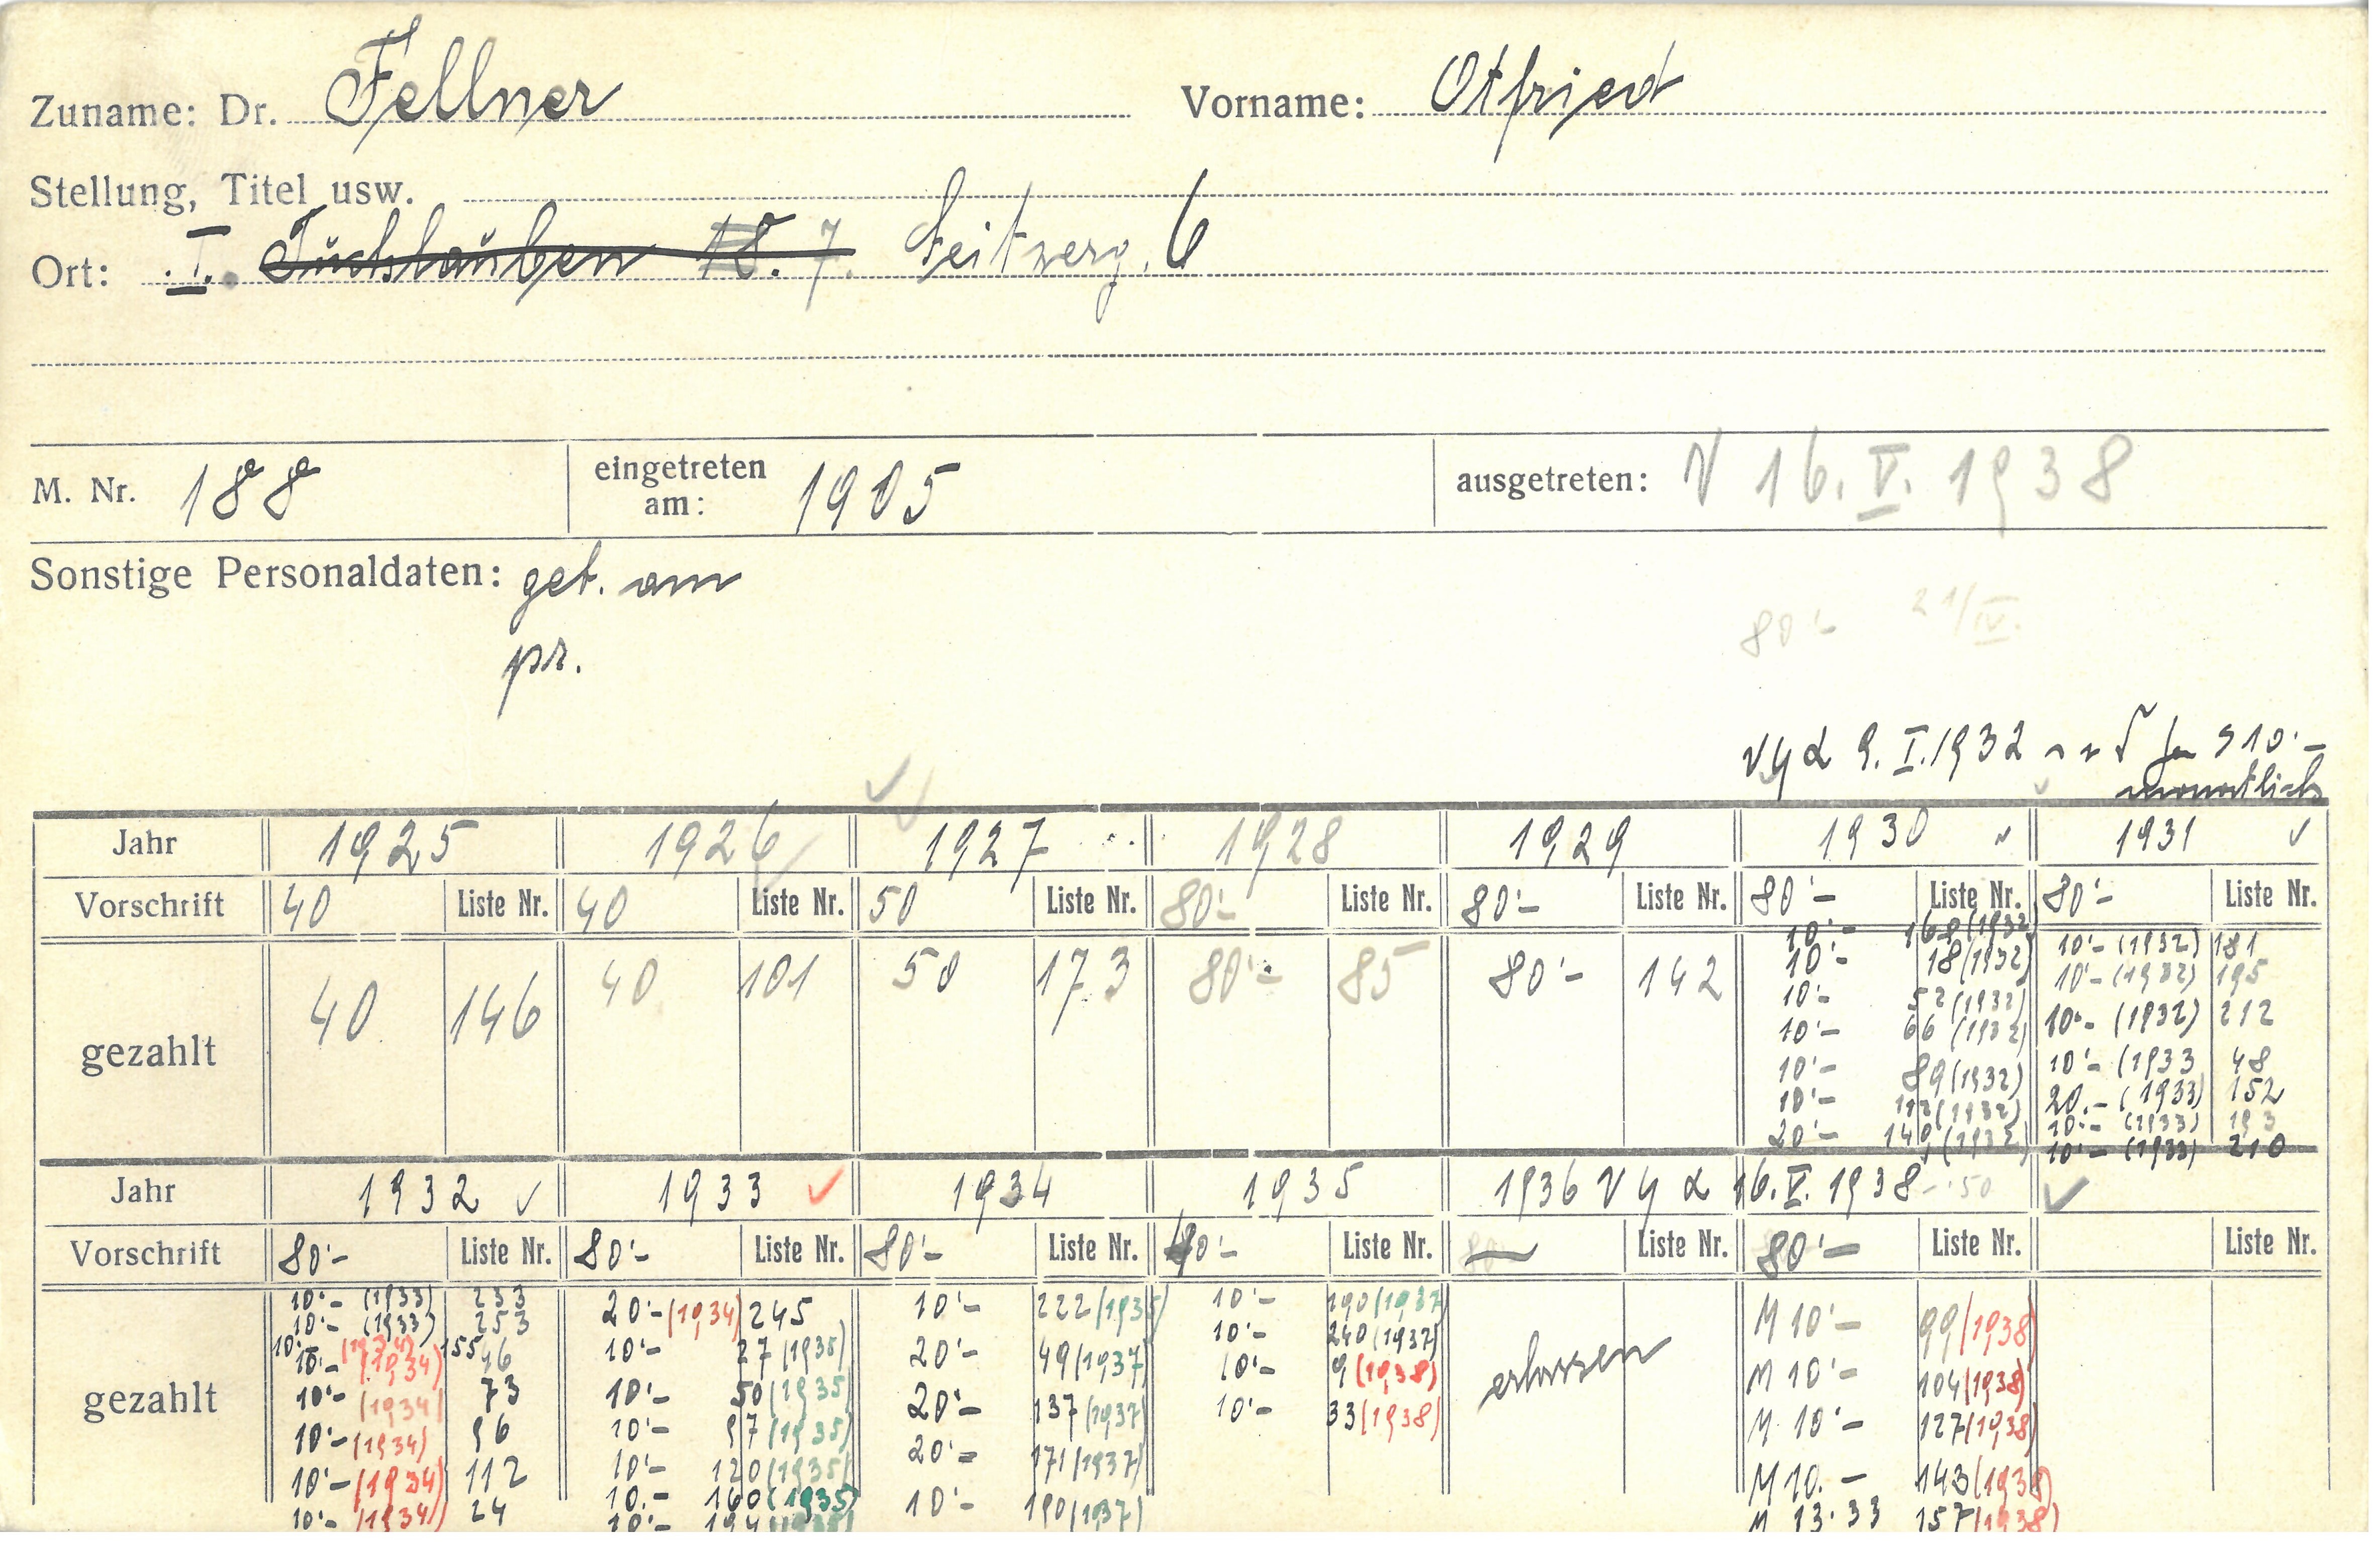 Zuname: Dr. Fellner Vorname: Otfried
Stellung, Titel usw.
Ort: I. Tuchlauben 18. 7. Seitzerg. 6
M. Nr. 188 eingetreten am: 1905 ausgetreten: 16. V. 1938
Sonstige Personaldaten: geb. am
80'- 21/IV.
pr.
9. I. 1932 S 10'-
monatlich
Jahr 1925 1926 1927 1928 1929 1930 1931
Vorschrift 40 Liste Nr. 40 Liste Nr. 50 Liste Nr. 80'- Liste Nr. 80'- Liste Nr. 80'- Liste Nr. 80'- Liste Nr.
gezahlt 40 146 40 101 50 173 80'- 85 80'- 142
10'- 168 (1932) 10'- (1932) 181
10'- 18 (1932) 10'- (1932) 195
10'- 52 (1932) 10'- (1932) 212
10'- 66 (1932) 10'- (1933 48
10'- 89 (1932) 20.- (1933) 152
10'- 112 (1932) 10'- (1933) 193
20'- 140 (1932) 10'- (1933) 210
Jahr 1932 1933 1934 1935 1936 16. V. 1938 50
Vorschrift 80'- Liste Nr. 80'- Liste Nr. 80'- Liste Nr. 80'- Liste Nr. Liste Nr. 80'- Liste Nr. Liste Nr.
gezahlt
10'- (1933) 233
10'- (1933) 253
10'- (1934) 155
10'- (1934) 46
10'- (1934) 73
10'- (1934) 96
10'- (1934) 112
10'- (1934) 24
20'- (1934) 245
10'- 27 (1935)
10'- 50 (1935
10'- 97 (1935)
10'- 120 (1935)
10.- 160 (1935)
10'- 194 (1935)
10'- 222 (1935)
20'- 49 (1937)
20'- 137 (1937)
20'- 171 (1937)
10'- 190 (1937)
10'- 190 (1937
10'- 240 (1937)
10'- 9 (1938)
10'- 33 (1938)
erlassen
M 10'- 99/(1938)
M 10'- 104 (1938)
M 10'- 127 (1938)
M 10.- 143 (1938)
M 13.33 157 (1938)